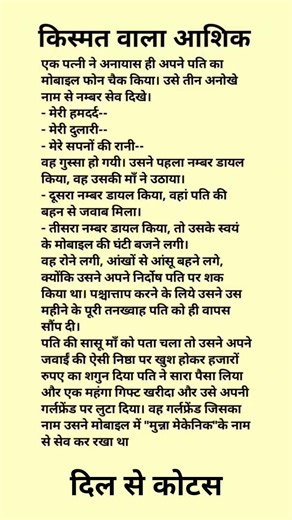 किस्मत वाला आशिक
एक पत्नी ने अनायास ही अपने पति का
मोबाइल फोन चैक किया। उसे तीन अनोखे
नाम से नम्बर सेव दिखे।
- मेरी हमदर्द--
- मेरी दुलारी--
- मेरे सपनों की रानी--
वह गुस्सा हो गयी। उसने पहला नम्बर डायल
किया, वह उसकी माँ ने उठाया।
- दूसरा नम्बर डायल किया, वहां पति की
बहन से जवाब मिला।
- तीसरा नम्बर डायल किया, तो उसके स्वयं
के मोबाइल की घंटी बजने लगी।
वह रोने लगी, आंखों से आंसू बहने लगे,
क्योंकि उसने अपने निर्दोष पति पर शक
किया था। पश्चात्ताप करने के लिये उसने उस
महीने के पूरी तनख्वाह पति को ही वापस
सौंप दी।
पति की सासू माँ को पता चला तो उसने अपने
जवाईं की ऐसी निष्ठा पर खुश होकर हजारों
रुपए का शगुन दिया पति ने सारा पैसा लिया
और एक महंगा गिफ्ट खरीदा और उसे अपनी
गर्लफ्रेंड पर लुटा दिया। वह गर्लफ्रेंड जिसका
नाम उसने मोबाइल में "मुन्ना मेकेनिक"के नाम
से सेव कर रखा था
दिल से कोटस